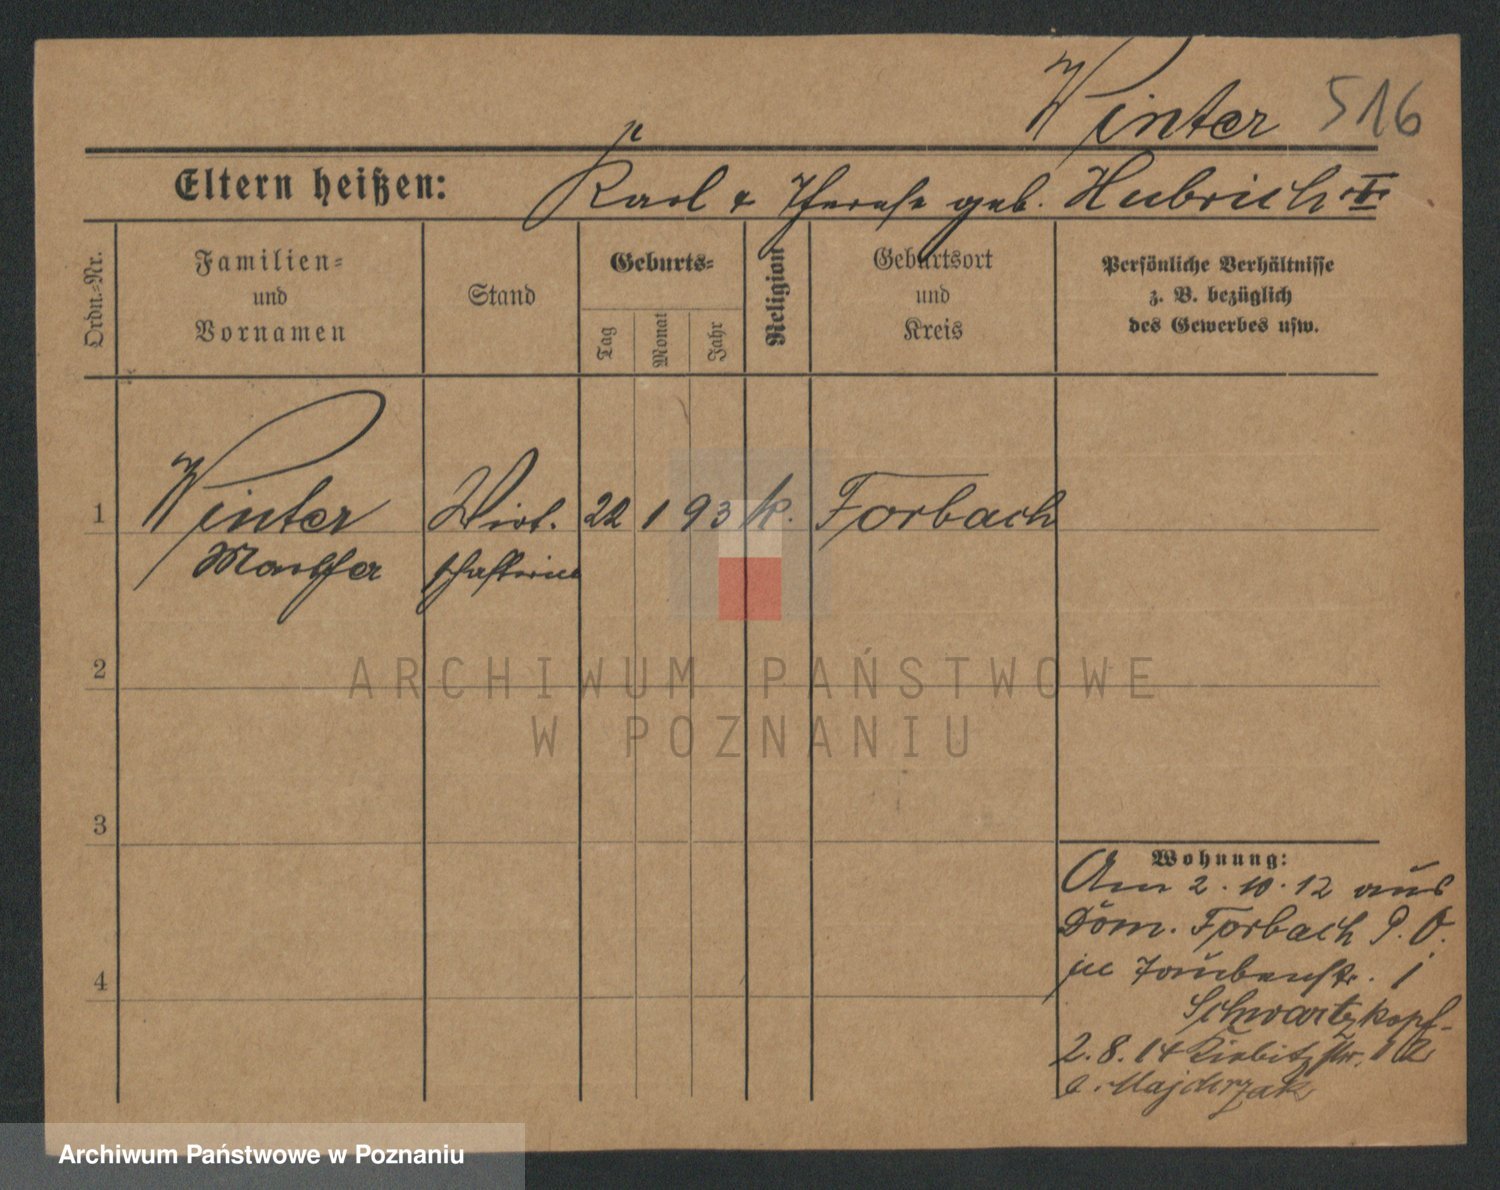 Winter 516
Eltern heißen: Karl & Therese geb. Hubrich
Ordn.-Nr.
Familien-
und
Vornamen
Stand
Geburts-
Tag
Monat
Jahr
Religion
Geburtsort
und
Kreis
Persönliche Verhältnisse
z. B. bezüglich
des Gewerbes usw.
1 Winter Wirt. 22 1 93 k. Forbach
Martha schafterin
2
3
4
Wohnung:
Am 2.10.12 aus
Dom. Forbach P. O.
in Taubenstr. 1
Schwartzkopf
2.8.14 Kiebitzstr. 1a
b. Majchrzak
ARCHIWUM PAŃSTWOWE
W POZNANIU
Archiwum Państwowe w Poznaniu